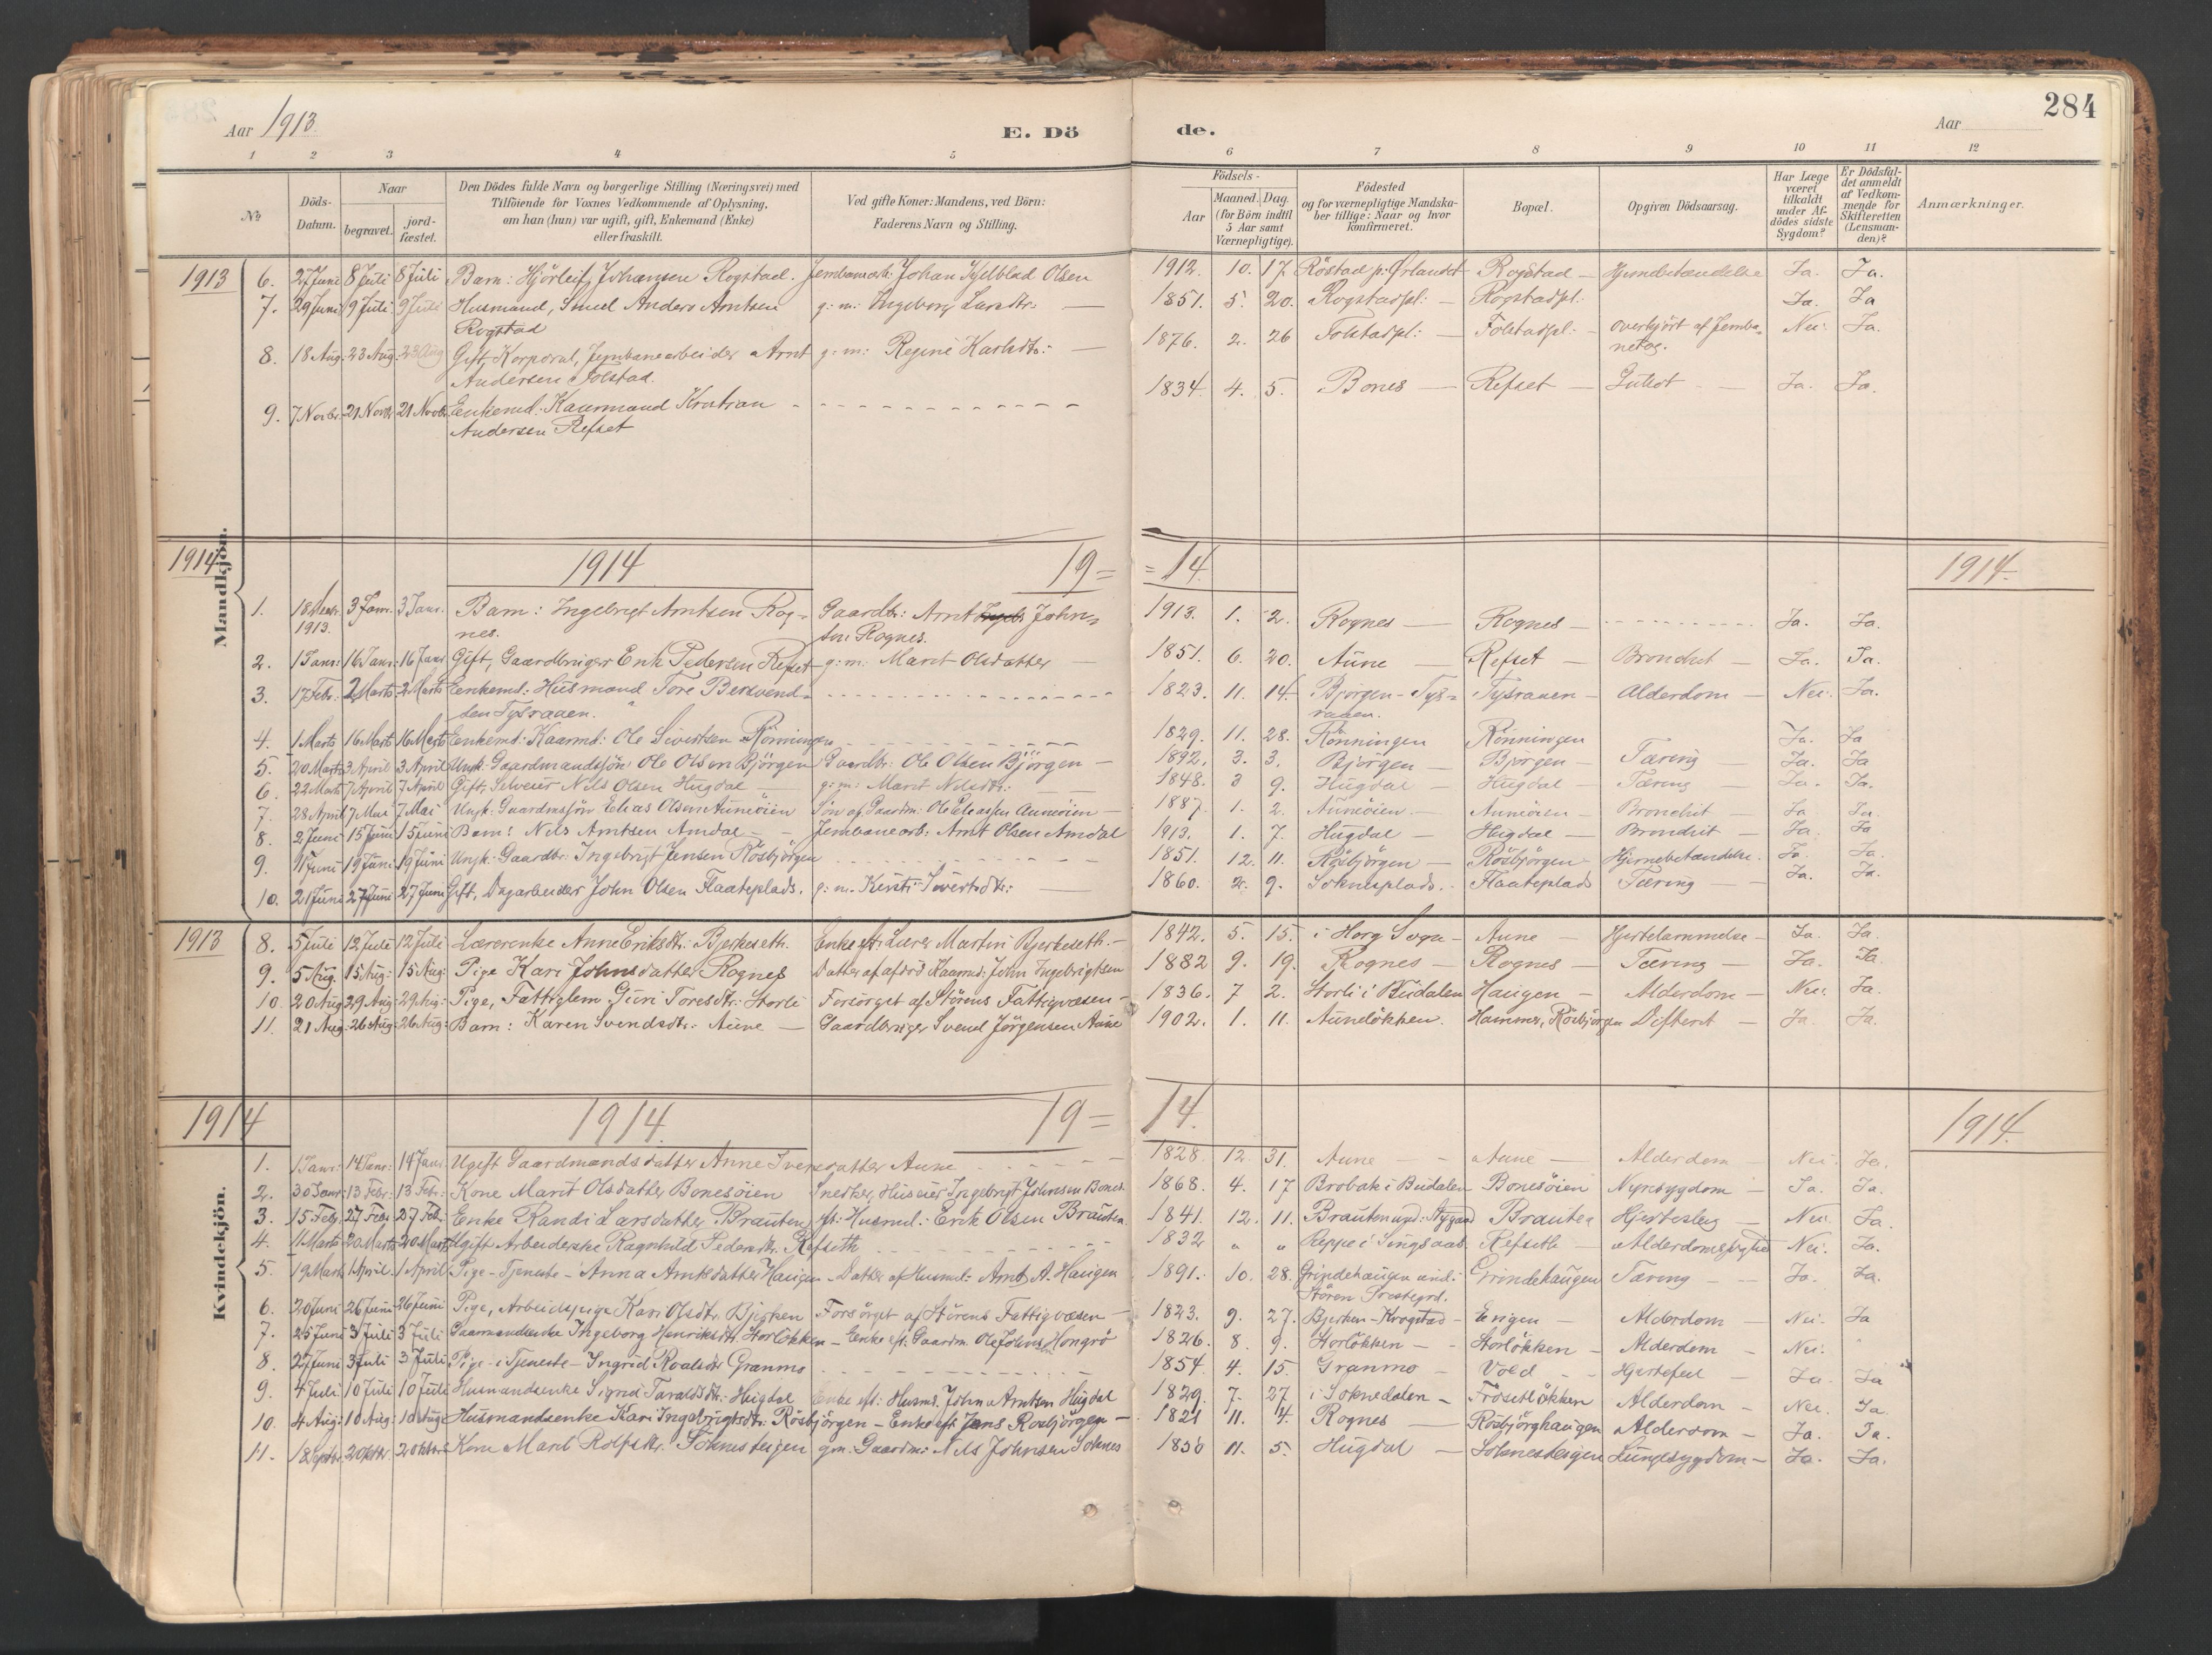 284
Aar 1913.
E. Dö
de.
Aar
1 2 3 4 5 6 7 8 9 10 11 12
№
Döds-
Datum.
Naar
begravet.
jord-
fæstet.
Den Dödes fulde Navn og borgerlige Stilling (Næringsvei) med
Tilföiende for Voxnes Vedkommende af Oplysning,
om han (hun) var ugift, gift, Enkemand (Enke)
eller fraskilt.
Ved gifte Koner: Mandens, ved Börn:
Faderens Navn og Stilling.
Födsels-
Aar
Maaned. Dag.
(for Börn indtil
5 Aar samt
Værnepligtige).
Födested
og for værnepligtige Mandska-
ber tillige: Naar og hvor
konfirmeret.
Bopæl.
Opgiven Dödsaarsag.
Har Læge
været
tilkaldt
under Af-
dödes sidste
Sygdom?
Er Dödsfal-
det anmeldt
af Vedkom-
mende for
Skifteretten
(Lensman-
den)?
Anmærkninger.
Mandkjön.
1913 6. 27 Juni 8 Juli 8 Juli Barn: Hjörleif Johansen Rogstad. Jernbanearb: Johan Kjelblad Olsen 1912. 10. 17 Röstad p. Ørlandet Rogstad Ja. Ja.
7. 29 Juni 9 Juli 9 Juli Husmand, Smed Anders Arntsen g: m: Ingeborg Larsdtr: 1851. 5. 20. Rogstadpl: Rogstadpl: Ja. Ja
Rogstad
8. 18 Aug: 23 Aug: 23 Aug Gift, Korporal, Jernbanearbeider Arnt g: m: Regine Karlsdtr: 1876. 2. 26 Folstadpl: Folstadpl: Overkjört af Jernba- Nei. Ja.
netog.
Andersen Folstad.
9. 7 Novbr. 21 Novbr 21 Novbr Enkemd: Kaarmand Kristian 1834. 4. 5. Bones Refset Ja. Ja.
Andersen Refset
1914 1914 19=
=14. 1914.
1. 18 Decbr. 3 Janr. 3 Janr. Barn: Ingebrigt Arntsen Rog- Gaardbr: Arnt John- 1913. 1. 2. Rognes Rognes Ja. Ja.
1913. nes. sen Rognes.
2. 1 Janr: 16 Janr: 16 Janr Gift, Gaardbruger Erik Pedersen Refset g: m: Marit Olsdatter 1851. 6. 20. Aune Refset Bronchit Ja. Ja.
3. 17 Febr. 2 Marts 2 Marts Enkemd: Husmand Tore Bersvend- 1823. 11. 14 Bjorgen-Tys- Tysvaaen Alderdom Nei. Ja.
sen Tysvaaen. vaaen.
4. 1 Marts 16 Marts 16 Marts Enkemd: Kaarmd: Ole Sivertsen Rönningen 1829. 11. 28. Rönningen Rönningen Ja. Ja
5. 20 Marts 3 April 3 April Ungk: Gaardmandssön Ole Olsen Björgen Gaardbr: Ole Olsen Bjorgen 1892. 3. 3. Bjorgen Bjorgen Tæring Ja. Ja
6. 22 Marts 7 April 7 April Gift, Selveier Nils Olsen Hugdal g: m: Marit Nilsdtr: 1848. 3 9. Hugdal Hugdal Tæring Ja. Ja.
7. 28 April 7 Mai 7 Mai Ungk: Gaardmssön Elias Olsen Aunöien Sön af Gaardm: Ole Eliassen Aunöien 1887. 1. 2. Aunöien Aunöien Bronchit Ja Ja.
8. 2 Juni 15 Juni 15 Juni Barn: Nils Arntsen Amdal Jernbanearb: Arnt Olsen Amdal 1913. 1. 7. Hugdal Hugdal Bronchit Ja. Ja
9. 11 Juni 19 Juni 19 Juni Ungk: Gaardbr: Ingebrigt Jensen Rösbjörgen 1851. 12. 11. Rösbjörgen Rösbjörgen Hjernebetændelse. Ja. Ja.
10. 21 Juni 27 Juni 27 Juni Gift, Dagarbeider John Olsen Flaateplads. g: m. Kirsti Sivertsdtr: 1860. 2. 9. Soknesplads. Flaateplads Tæring Ja. Ja.
Kvindekjön.
1913 8. 5 Juli 12 Juli 12 Juli Lærerenke Anne Eriksdtr: Bjerkeseth. Enke eft: Lærer Martin Bjerkeseth. 1842. 5. 15. i Horg Sogn Aune Hjertelammelse Ja. Ja.
9. 5 Aug. 15 Aug: 15 Aug: Pige Kari Johnsdatter Rognes Datter af afdöd Kaarmd: John Ingebrigtsen 1882 9. 19. Rognes Rognes Tæring Ja. Ja.
10. 20 Aug 29 Aug: 29 Aug: Pige, Fattiglem Guri Toresdtr: Storli Forsörget af Störens Fattigvæsen 1836. 7 2. Storli i Budalen Haugen Alderdom Nei. Ja.
11. 21 Aug: 26 Aug: 26 Aug: Barn: Karen Svendsdtr: Aune Gaardbruger Svend Jörgensen Aune 1902. 1. 11. Aunelökken. Hammer, Rösbjörgen Difterit Ja. Ja.
1914 1914. 19=
14. 1914.
1. 1 Janr: 14 Janr: 14 Janr. Ugift Gaardmandsdatter Anne Iversdatter Aune 1828. 12. 31. Aune Aune Alderdom Nei. Ja.
2. 30 Janr: 13 Febr: 13 Febr: Kone Marit Olsdatter Bonesöien Snedker, Huseier Ingebrigt Johnsen Bones. 1868. 4. 17 Brobak i Budalen Bonesöien Nyresygdom Ja. Ja.
3. 15 Febr. 27 Febr 27 Febr. Enke Randi Larsdatter Brauten eft: Husmd: Erik Olsen Brauten 1841. 12. 11. Brauten und: Brauten Hjerteslag Nei. Ja.
4. 11 Marts 20 Marts 20 Marts Ugift Arbeiderske Ragnhild Pedersdtr. Refseth 1832 " " Reppe i Singsaas Refseth Nei. Ja.
5. 19 Marts 1 April. 1 April Pige-Tjeneste- Anna Arntsdatter Haugen Datter af Husmd: Arnt A. Haugen 1891. 10. 28. Grindehaugen und: Grindehaugen Tæring Ja. Ja.
Stören Prestegrd.
6. 20 Juni 26 Juni 26 Juni Pige, Arbeidspige Kari Olsdtr. Bjerken Forsörget af Störens Fattigvæsen 1823. 9. 27. Bjerken-Krogstad Alderdom Nei. Ja
7. 25 Juni 3 Juli 3 Juli Gaarmandsenke Ingeborg Henriksdtr. Storlökken Enke eft. Gaardm. Ole Johns. 1826. 8. 9. Storlökken Storlökken Alderdom Nei. "
8. 27 Juni 3 Juli 3 Juli Pige i Tjeneste Ingrid Roalsdtr Granmo 1854. 4. 15. Granmo Vold Hjertefeil Ja. Ja
9. 4 Juli 10 Juli 10 Juli Husmandsenke Sigrid Taraldsdtr: Hugdal Enke eft: Husmd. John Arntsen Hugdal 1829. 7. 27 i Soknedalen Frösetlökken Alderdom Nei. Ja.
10. 4 Aug: 10 Aug: 10 Aug: Husmandsenke Kari Ingebrigtsdtr: Rösbjörgen Enke eft: Jens Rosbjörgen 1821 11. 4. Rognes Rösbjörghaugen Alderdom Ja. Ja.
11. 18 Septbr. 2 Oktbr. 2 Oktbr. Kone Marit Rolfsdtr. Soknesteigen gm: Gaardm: Nils Johnsen Soknes 1850 11. 5. Hugdal Soknesteigen Lungesygdom Ja. Ja.